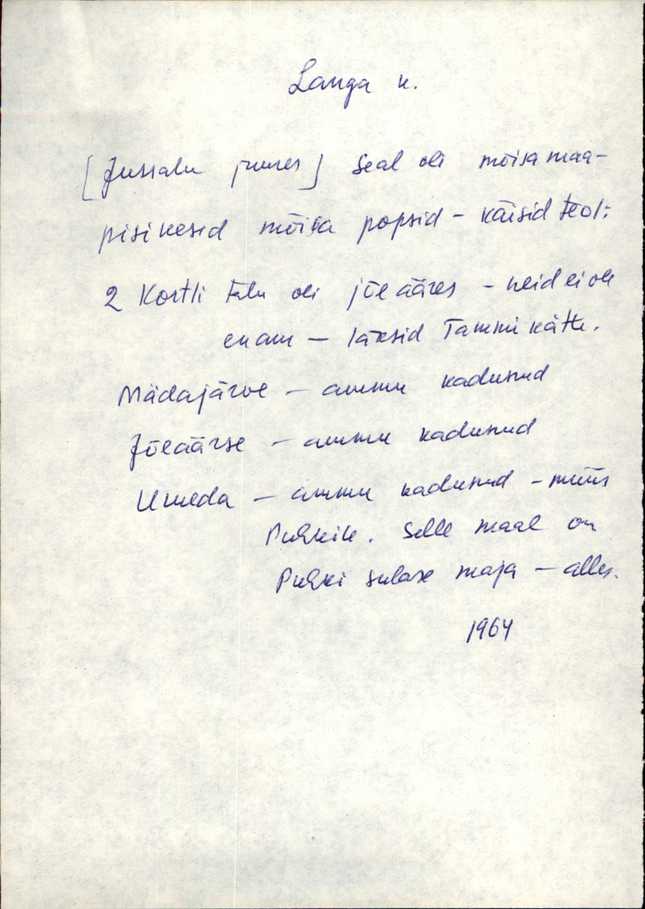 Langa k.
[Jussalu juures] Seal oli mõisa maa-
pisikesed mõisa popsid - käisid teol:
2 Kortli talu oli jõe ääres - neid ei ole
enam - läksid Tammi kätte.
Mädajärve - ammu kadunud
Jõeäärse - ammu kadunud
Umeda - ammu kadunud - müüs
Puhkile. Selle maal on
Puhki sulase maja - alles.
1964